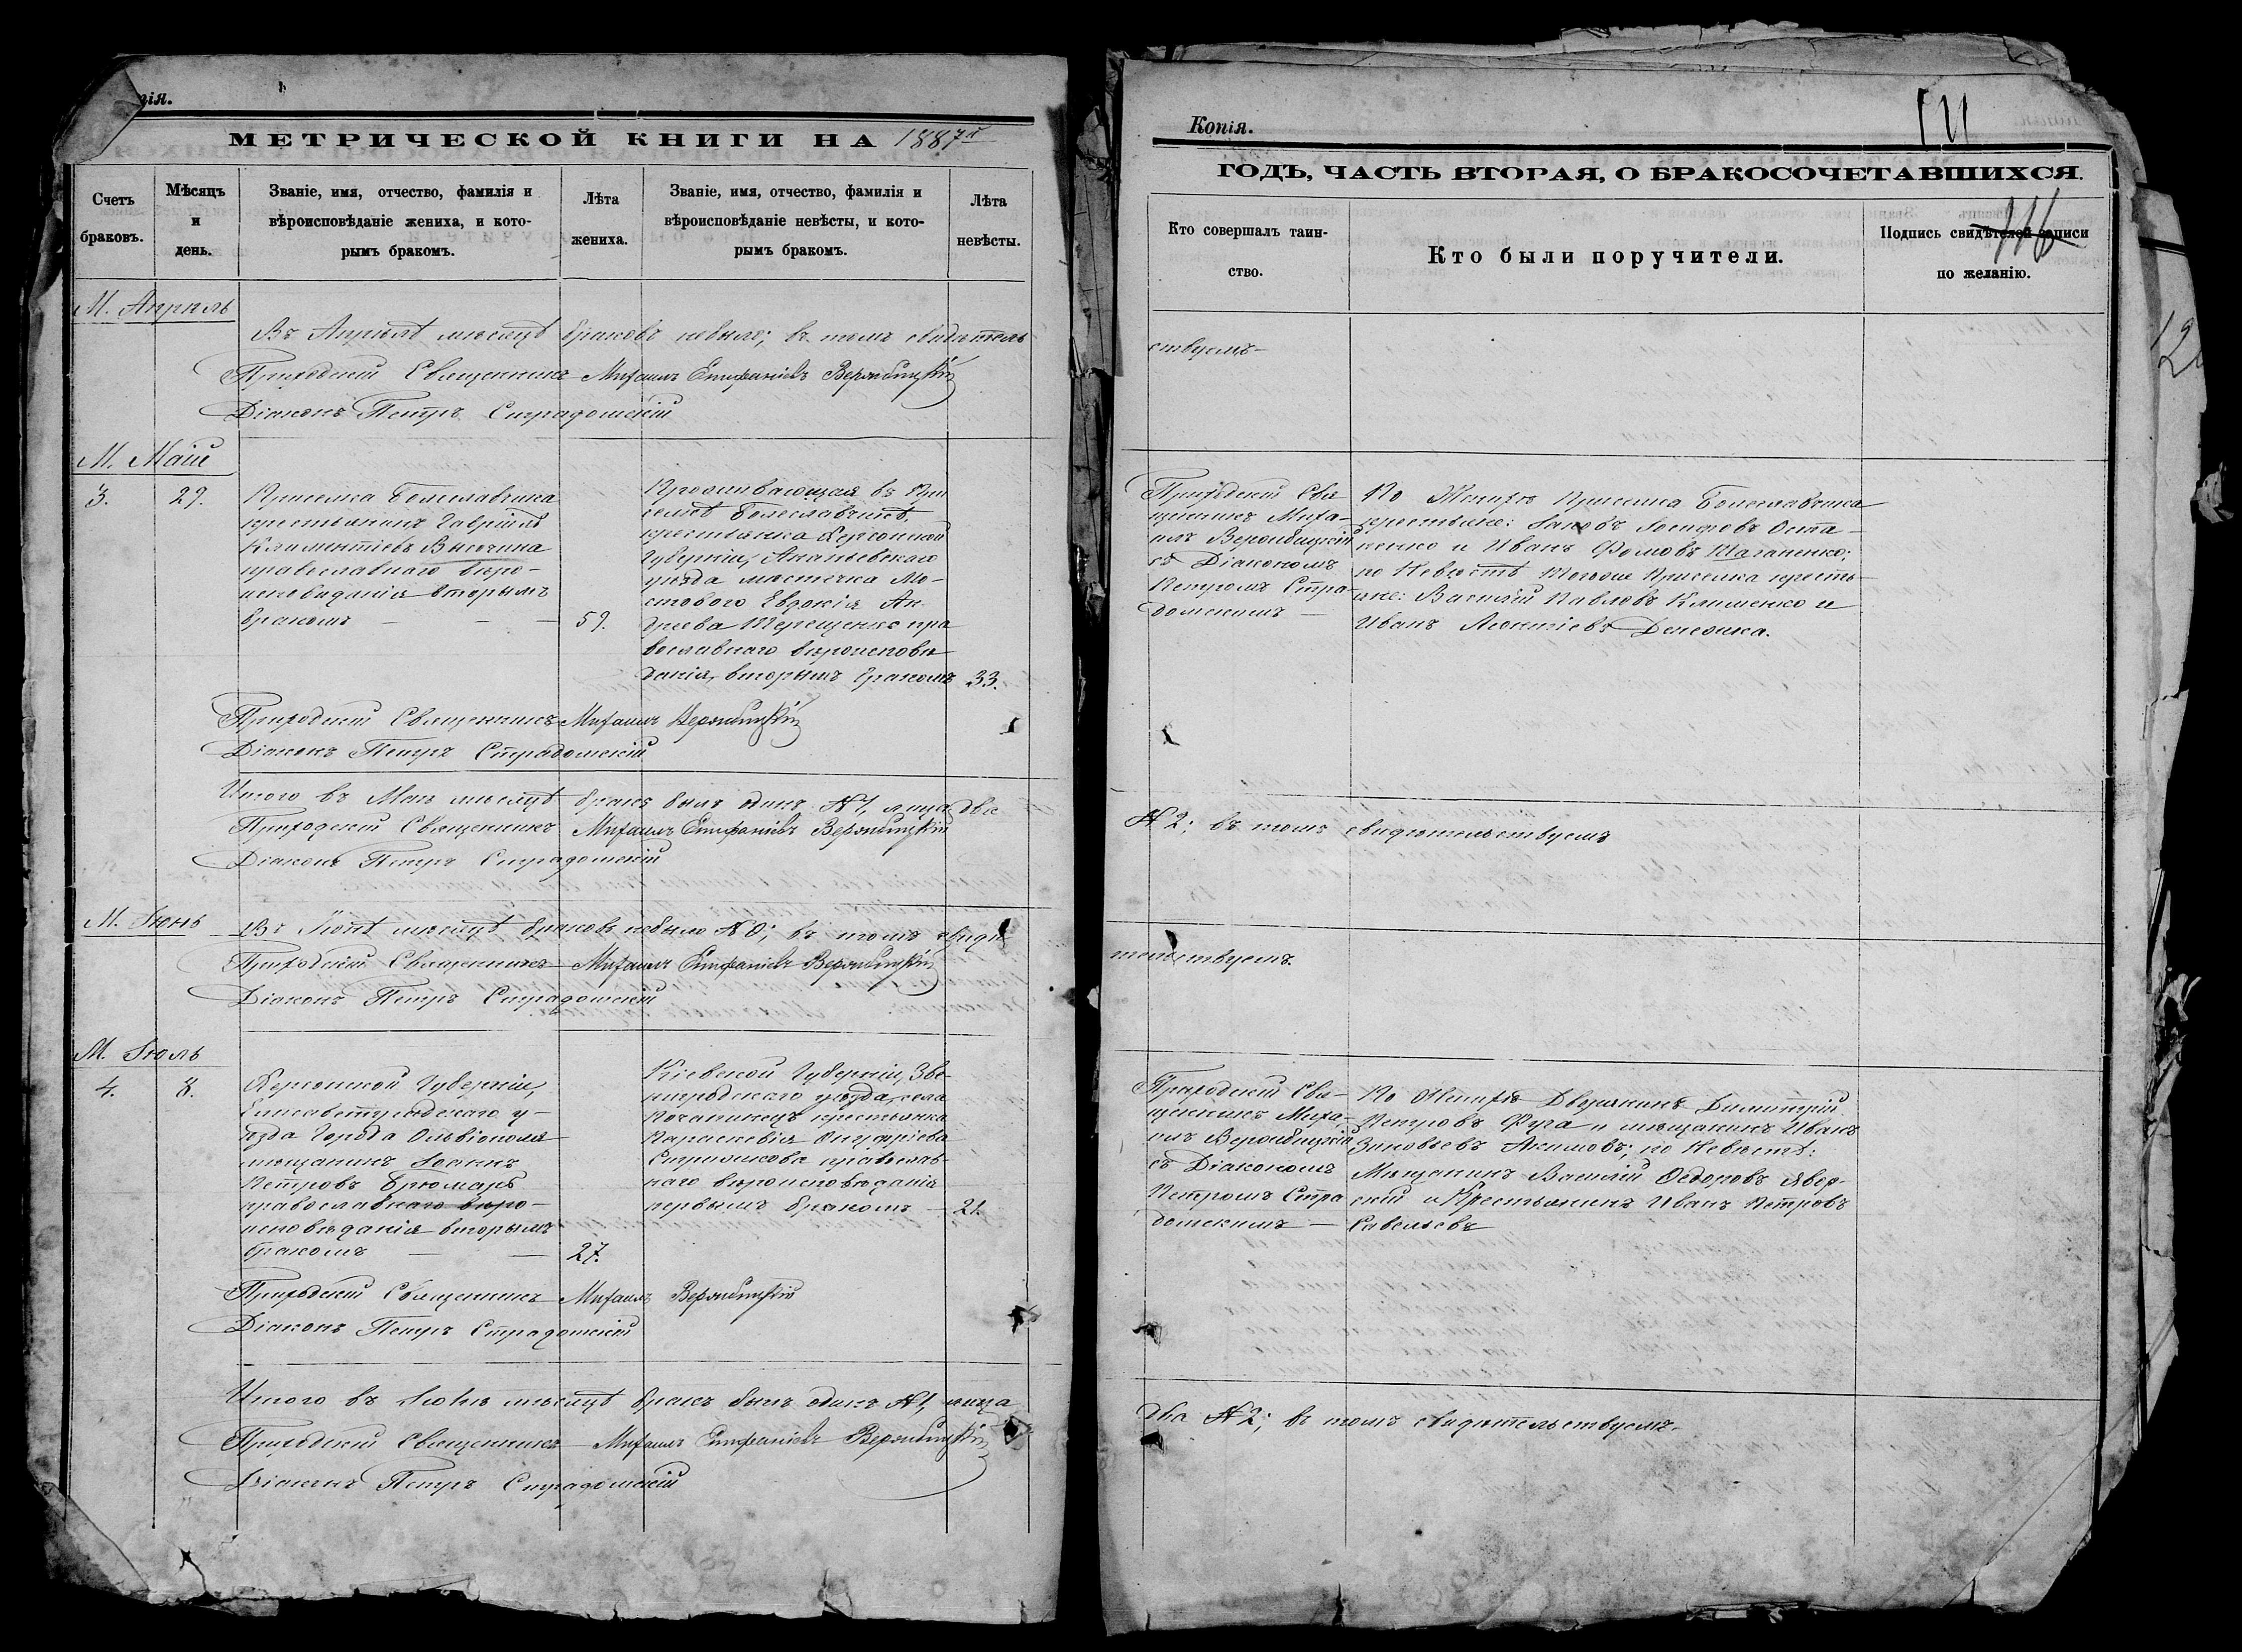 пія.
МЕТРИЧЕСКОЙ КНИГИ НА 1887й
Счетъ браковъ.
Мѣсяцъ и день.
Званіе, имя, отчество, фамилія и
вѣроисповѣданіе жениха, и кото-
рымъ бракомъ.
Лѣта
жениха.
Званіе, имя, отчество, фамилія и
вѣроисповѣданіе невѣсты, и кото-
рымъ бракомъ.
Лѣта
невѣсты.
М. Апрѣль
Въ Апрѣлѣ мѣсяцѣ браковъ небыло; въ томъ свидѣтель
Приходскій Священникъ Михаилъ Епифаніевъ Вержбицкій
Діаконъ Петръ Страдомскій
М. Маій
3.
29.
Приселка Болеславчика
крестьянинъ Гавріилъ
Климентіевъ Высочина
православнаго вѣро-
исповѣданія вторымъ
бракомъ
59.
Проживающая въ при
селкѣ Болеславчикѣ,
крестьянка Херсонской
Губерніи, Ананьевскаго
уѣзда мѣстечка Мо-
стового Евдокія Ан
дреева Терещенко пра
вославнаго вѣроисповѣ
данія, вторымъ бракомъ
33.
Приходскій Священникъ Михаилъ Вержбицкій
Діаконъ Петръ Страдомскій
Итого въ Маѣ мѣсяцѣ бракъ былъ одинъ №1, лица два
Приходскій Священникъ Михаилъ Епифаніевъ Вержбицкій
Діаконъ Петръ Страдомскій
М. Іюнь
Въ Іюнѣ мѣсяцѣ браковъ небыло №0; въ томъ свидѣ
Приходскій Священникъ Михаилъ Епифаніевъ Вержбицкій
Діаконъ Петръ Страдомскій
М. Іюль
4.
8.
Херсонской Губерніи,
Елисаветградскаго у-
ѣзда Города Ольвіополя
мѣщанинъ Іоаннъ
Петровъ
православнаго вѣро-
исповѣданія вторымъ
бракомъ
27.
Кіевской Губерніи, Зве-
нигородскаго уѣзда, села
крестьянка
Параскевія Онуфріева
православ-
наго вѣроисповѣданія
первымъ бракомъ
21.
Приходскій Священникъ Михаилъ Вержбицкій
Діаконъ Петръ Страдомскій
Итого въ Іюлѣ мѣсяцѣ бракъ былъ одинъ №1, лица
Приходскій Священникъ Михаилъ Епифаніевъ Вержбицкій
Діаконъ Петръ Страдомскій
Копія.
ГОДЪ, ЧАСТЬ ВТОРАЯ, О БРАКОСОЧЕТАВШИХСЯ.
116
Кто совершалъ таин-
ство.
Кто были поручители.
Подпись свидѣтелей записи
по желанію.
ствуемъ
Приходскій Свя
щенникъ Миха-
илъ Вержбицкій
съ Діакономъ
Петромъ Стра-
домскимъ
По Женихѣ Приселка Болеславчика
крестьяне: Іаковъ Іосифовъ Оста-
пенко и Иванъ Фомовъ
по Невѣстѣ тогоже Приселка кресть-
яне: Василій Павловъ Клименко и
Иванъ Леонтіевъ
№2; въ томъ свидѣтельствуемъ
тельствуемъ.
Приходскій Свя-
щенникъ Миха-
илъ Вержбицкій
съ Діакономъ
Петромъ Стра
домскимъ
По Женихѣ Дворянинъ Димитрій
Петровъ Фуга и мѣщанинъ Иванъ
Зиновьевъ Акимовъ; по Невѣстѣ:
Мѣщанинъ Василій Ѳедоровъ Явор-
скій и Крестьянинъ Иванъ Петровъ
Савельевъ
два №2; въ томъ свидѣтельствуемъ.